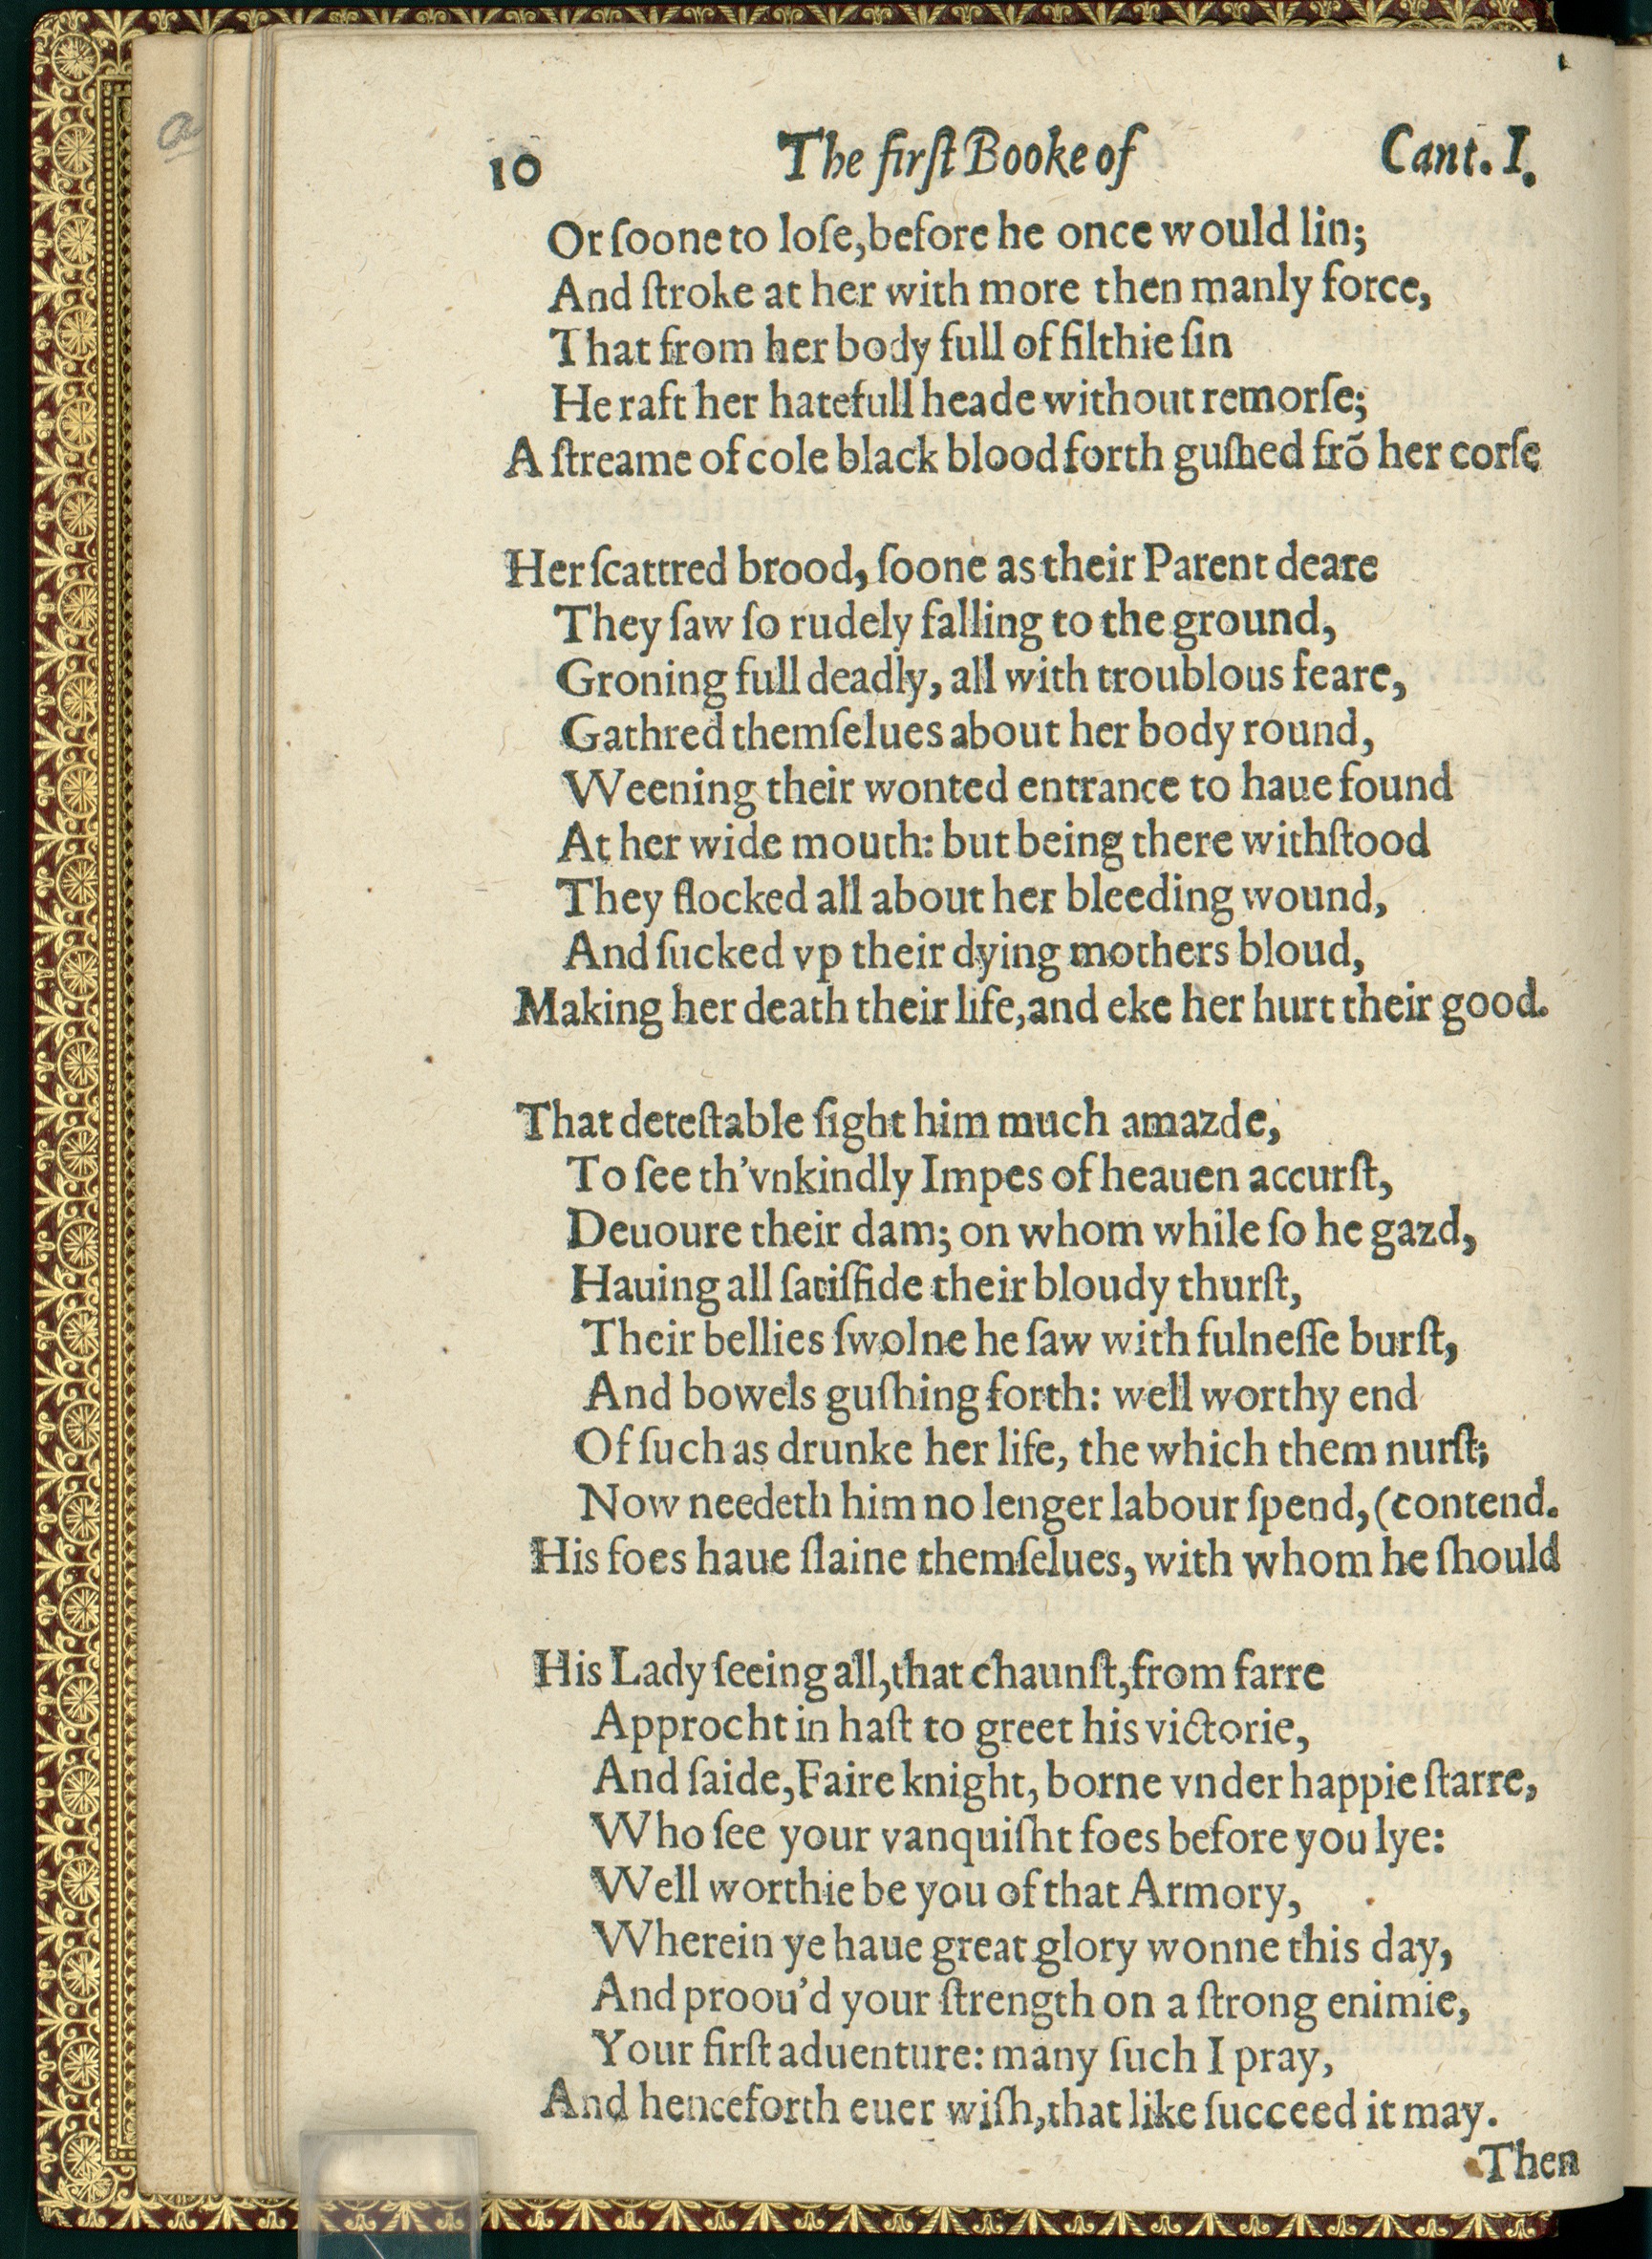 a
10 The firſt Booke of Cant. I.
Or ſoone to loſe, before he once would lin;
And ſtroke at her with more then manly force,
That from her body full of filthie ſin
He raft her hatefull heade without remorſe;
A ſtreame of cole black blood forth guſhed frõ her corſe
Her ſcattred brood, ſoone as their Parent deare
They ſaw ſo rudely falling to the ground,
Groning full deadly, all with troublous feare,
Gathred themſelues about her body round,
Weening their wonted entrance to haue found
At her wide mouth: but being there withſtood
They flocked all about her bleeding wound,
And ſucked vp their dying mothers bloud,
Making her death their life, and eke her hurt their good.
That deteſtable ſight him much amazde,
To ſee th'vnkindly Impes of heauen accurſt,
Deuoure their dam; on whom while ſo he gazd,
Hauing all ſatiſfide their bloudy thurſt,
Their bellies ſwolne he ſaw with fulneſſe burſt,
And bowels guſhing forth: well worthy end
Of ſuch as drunke her life, the which them nurſt;
Now needeth him no lenger labour ſpend, (contend.
His foes haue ſlaine themſelues, with whom he ſhould
His Lady ſeeing all, that chaunſt, from farre
Approcht in haſt to greet his victorie,
And ſaide, Faire knight, borne vnder happie ſtarre,
Who ſee your vanquiſht foes before you lye:
Well worthie be you of that Armory,
Wherein ye haue great glory wonne this day,
And proou'd your ſtrength on a ſtrong enimie,
Your firſt aduenture: many ſuch I pray,
And henceforth euer wiſh, that like ſucceed it may.
Then